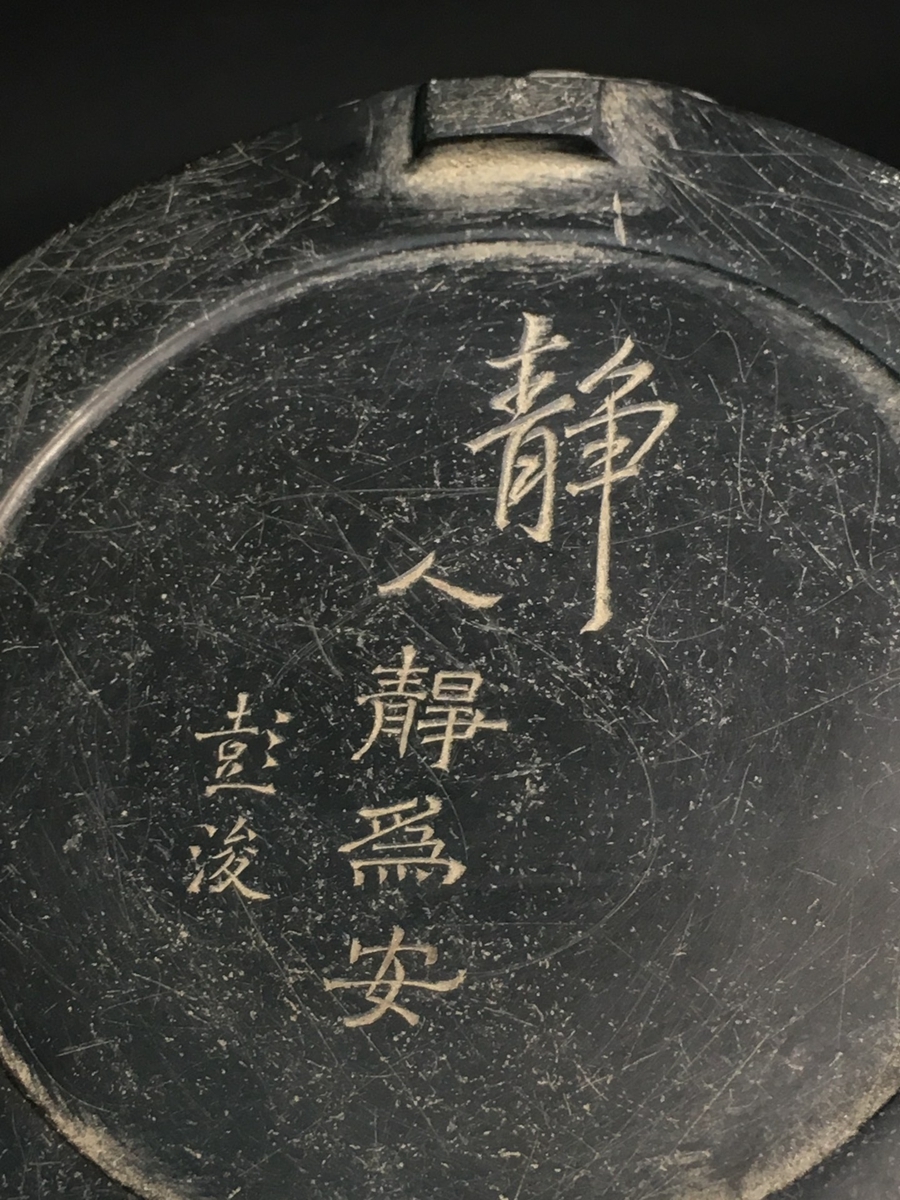 静
人靜爲安
彭浚